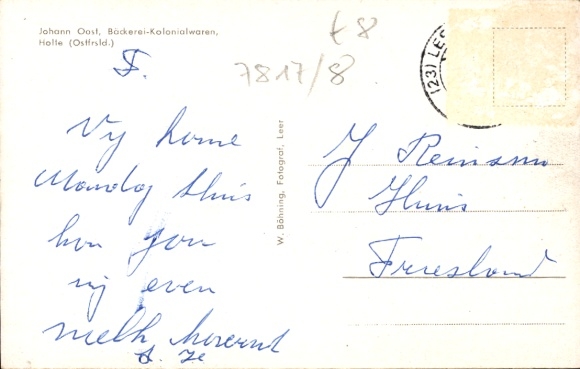 Johann Oost, Bäckerei-Kolonialwaren,
Holte (Ostfrsld.)
F.
t8
7817/8
(23) LEE
Vy kome
Mandag thuis
kon jou
mij even
melk
W. Böhning, Fotograf, Leer
J Reinsma
Huins
Friesland